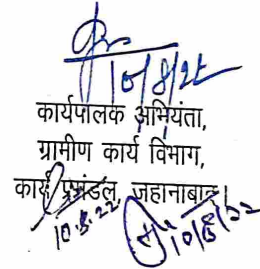 10/8/22
कार्यपालक अभियंता,
ग्रामीण कार्य विभाग,
कार्य प्रमंडल, जहानाबाद।
10.8.22 10/8/22